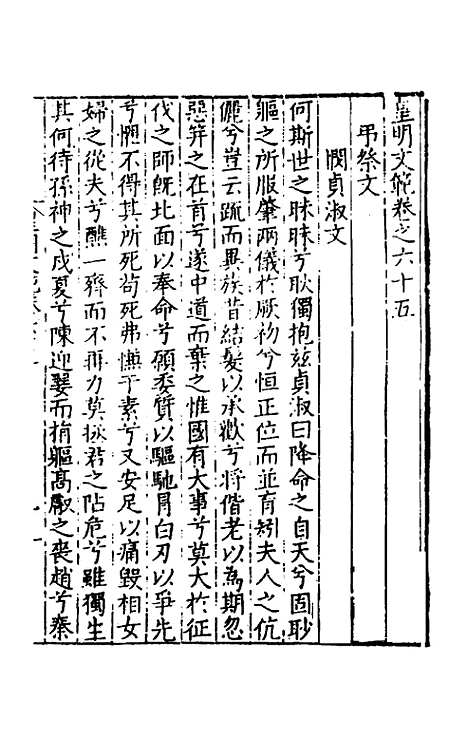 皇明文範卷之六十五
弔祭文
閔貞淑文
何斯世之昧昧兮耿獨抱玆貞淑曰降命之自天兮固眇
軀之所服肇兩儀於厥初兮恒正位而並育矧夫人之伉
儷兮豈云疏而異族昔結髮以承歡兮將偕老以為期忽
惡笄之在首兮遂中道而棄之惟國有大事兮莫大於征
伐之師旣北面以奉命兮願委質以驅馳冐白刃以爭先
兮懼不得其所死苟死弗憮于素兮又安足以痛毀相女
婦之從夫兮醮一齊而不再力莫拯君之阽危兮雖獨生
其何待孫神之戍夏兮陳迎嬰而捐軀高厥之喪趙兮秦